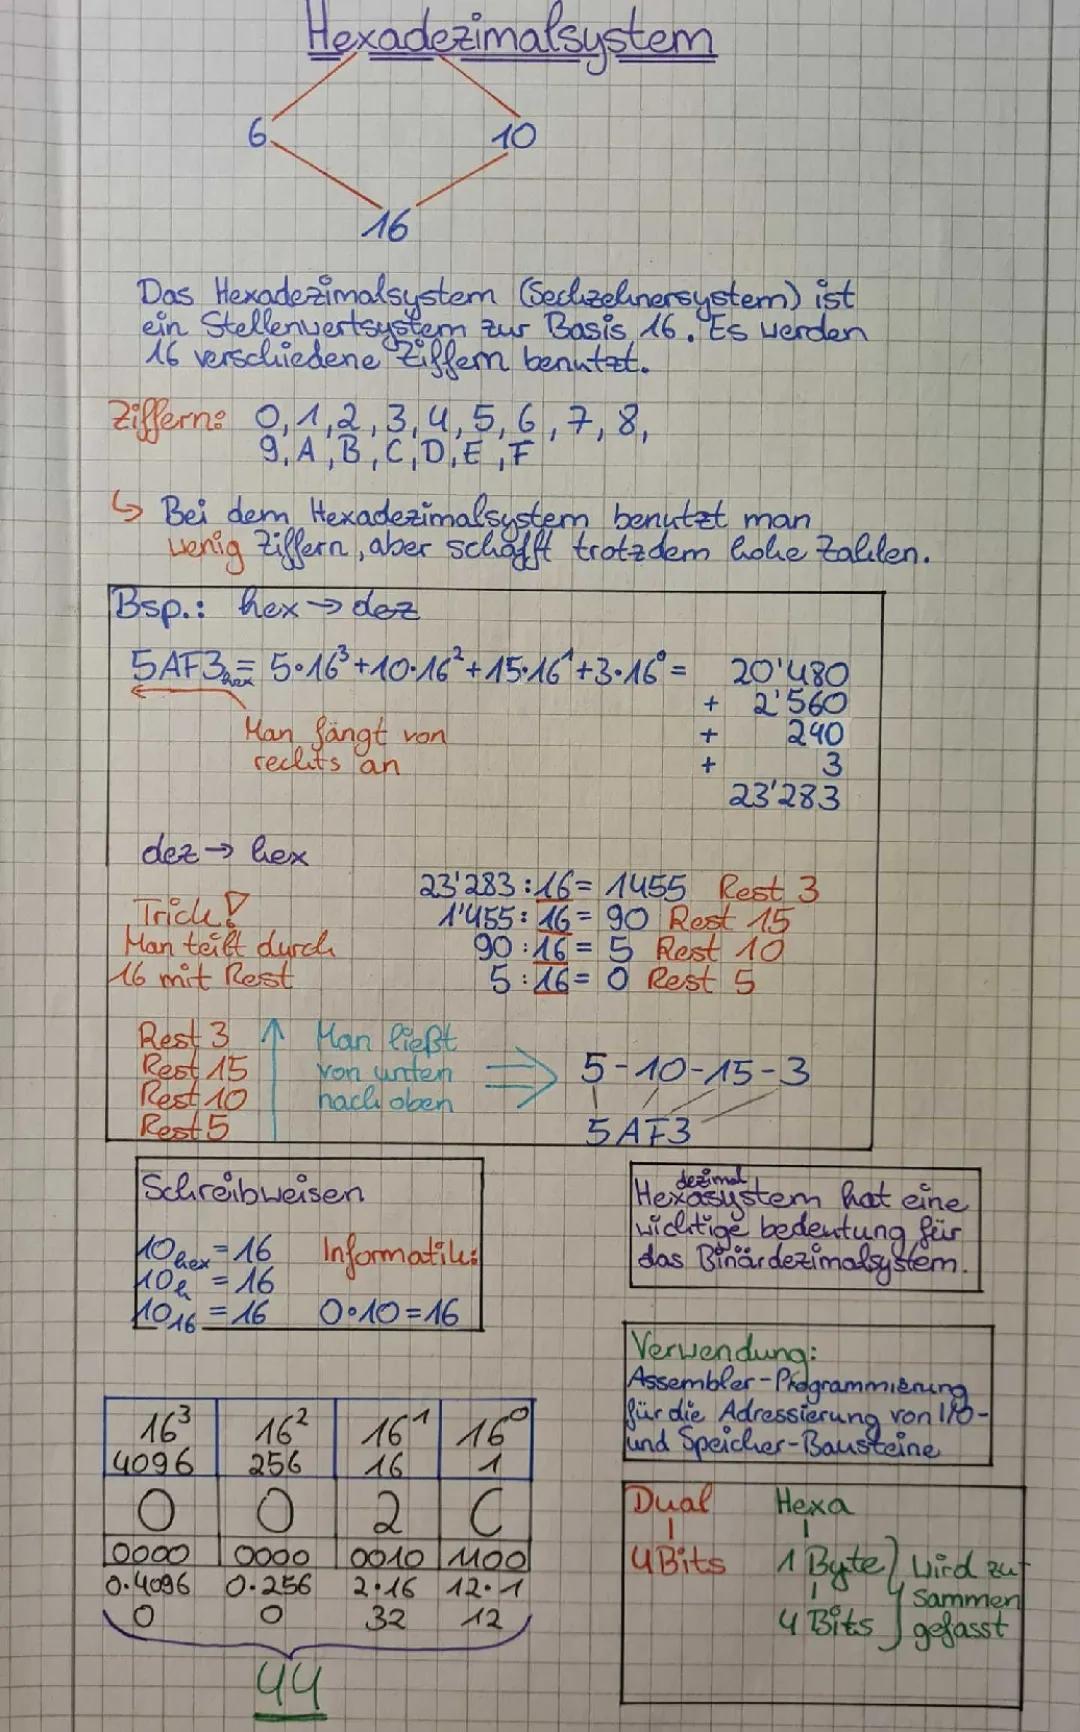 Hexadezimalsystem
6 10
16
Das Hexadezimalsystem (Sechzehnersystem) ist
ein Stellenwertsystem zur Basis 16. Es werden
16 verschiedene Ziffern benutzt.
Ziffern: 0,1,2,3,4,5,6,7,8,
9,A,B,C,D,E,F
↳ Bei dem Hexadezimalsystem benutzt man
wenig Ziffern, aber schafft trotzdem hohe Zahlen.
Bsp.: hex → dez
5AF3hex = 5·16³+10·16²+15·16¹+3·16⁰ = 20'480
+ 2'560
+ 240
+ 3
23'283
Man fängt von
rechts an
dez → hex
23'283 : 16 = 1455 Rest 3
1'455 : 16 = 90 Rest 15
90 : 16 = 5 Rest 10
5 : 16 = 0 Rest 5
Trick!
Man teilt durch
16 mit Rest
Rest 3
Rest 15
Rest 10
Rest 5
Man ließt
von unten
nach oben
5-10-15-3
5AF3
Schreibweisen
10hex = 16 Informatik:
10h = 16
10₁₆ = 16 0·10=16
dezimal
Hexasystem hat eine
wichtige bedeutung für
das Binärdezimalsystem.
Verwendung:
Assembler-Programmierung
für die Adressierung von I/O-
und Speicher-Bausteine
16³ 16² 16¹ 16⁰
4096 256 16 1
0 0 2 C
0000 0000 0010 1100
0·4096 0·256 2·16 12·1
0 0 32 12
44
Dual Hexa
4Bits 1 Byte wird zu
sammen
4 Bits gefasst